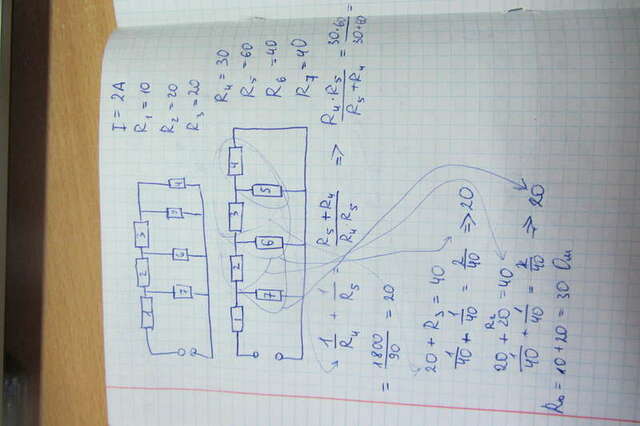 I = 2A
R1 = 10
R2 = 20
R3 = 20
R4 = 30
R5 = 60
R6 = 40
R7 = 40
1 2 3
7 6
1 2 3 4
7 6 5
1/R4 + 1/R5 = (R5 + R4)/(R4 R5) => (R4 · R5)/(R5 + R4) = (30·60)/(30+60) =
= 1800/90 = 20
20 + R3 = 40
1/40 + 1/40 = 2/40 => 20
20 + 20 = 40
R2
1/40 + 1/40 = 2/40 => 20
R0 = 10 + 20 = 30 Ом